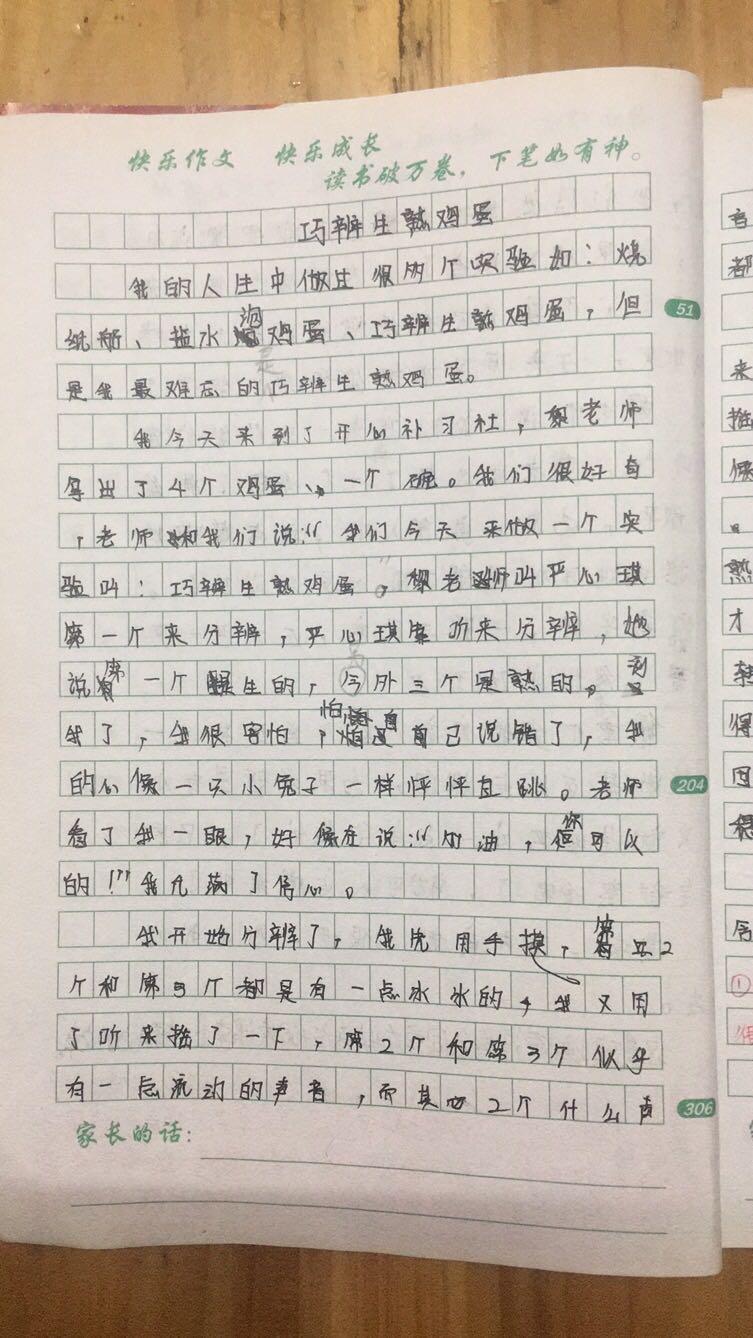 快乐作文 快乐成长
读书破万卷，下笔如有神。
巧辨生熟鸡蛋
我的人生中做过很多个实验如：烧
纸船、盐水泡鸡蛋、巧辨生熟鸡蛋，但
是我最难忘的是巧辨生熟鸡蛋。
我今天来到了开心补习社，黎老师
拿出了4个鸡蛋、一个碗。我们很好奇
，老师和我们说：“我们今天来做一个实
验叫：巧辨生熟鸡蛋。”黎老师叫严心琪
第一个来分辨，严心琪成功来分辨，她
说第一个是生的，另外三个是熟的。到
我了，我很害怕，怕自己说错了，我
的心像一只小兔子一样怦怦直跳。老师
看了我一眼，好像在说：“加油，你可以
的！”我充满了信心。
我开始分辨了，我先用手摸，第2
个和第3个都是有一点冰冰的，我又用
了听来摇了一下，第2个和第3个似乎
有一点流动的声音，而其它2个什么声
家长的话：
51
204
306
音
都
来
摇
像
。
熟
才
转
得
因
①